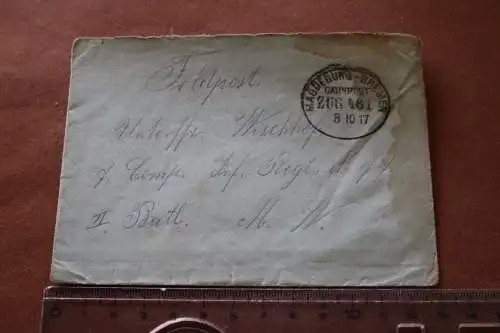 Feldpost.
MAGDEBURG-BREMEN
BAHNPOST
ZUG 461
8 10 17
Unteroffz. Wischhof
7 Comp. Inf. Regt. No
II. Batl. M. W.
0 1 2 3 4 5 6 7 8 9 10 11 12 13 14